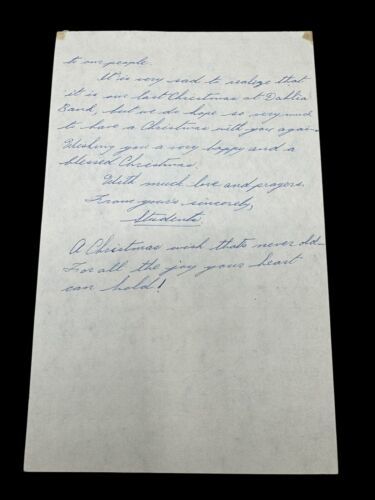 to our people.
It is very sad to realize that
it is our last Christmas at Dahlia
Bank, but we do hope so very much
to have a Christmas with you again.
Wishing you a very happy and a
blessed Christmas.
With much love and prayers,
From your's sincerely,
Students.
A Christmas wish that's never old—
For all the joy your heart
can hold!